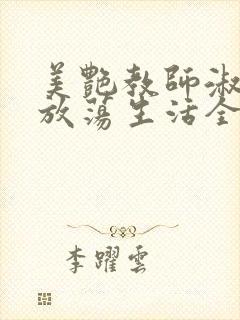 美艷教師淑
放蕩生活全
李躍雲